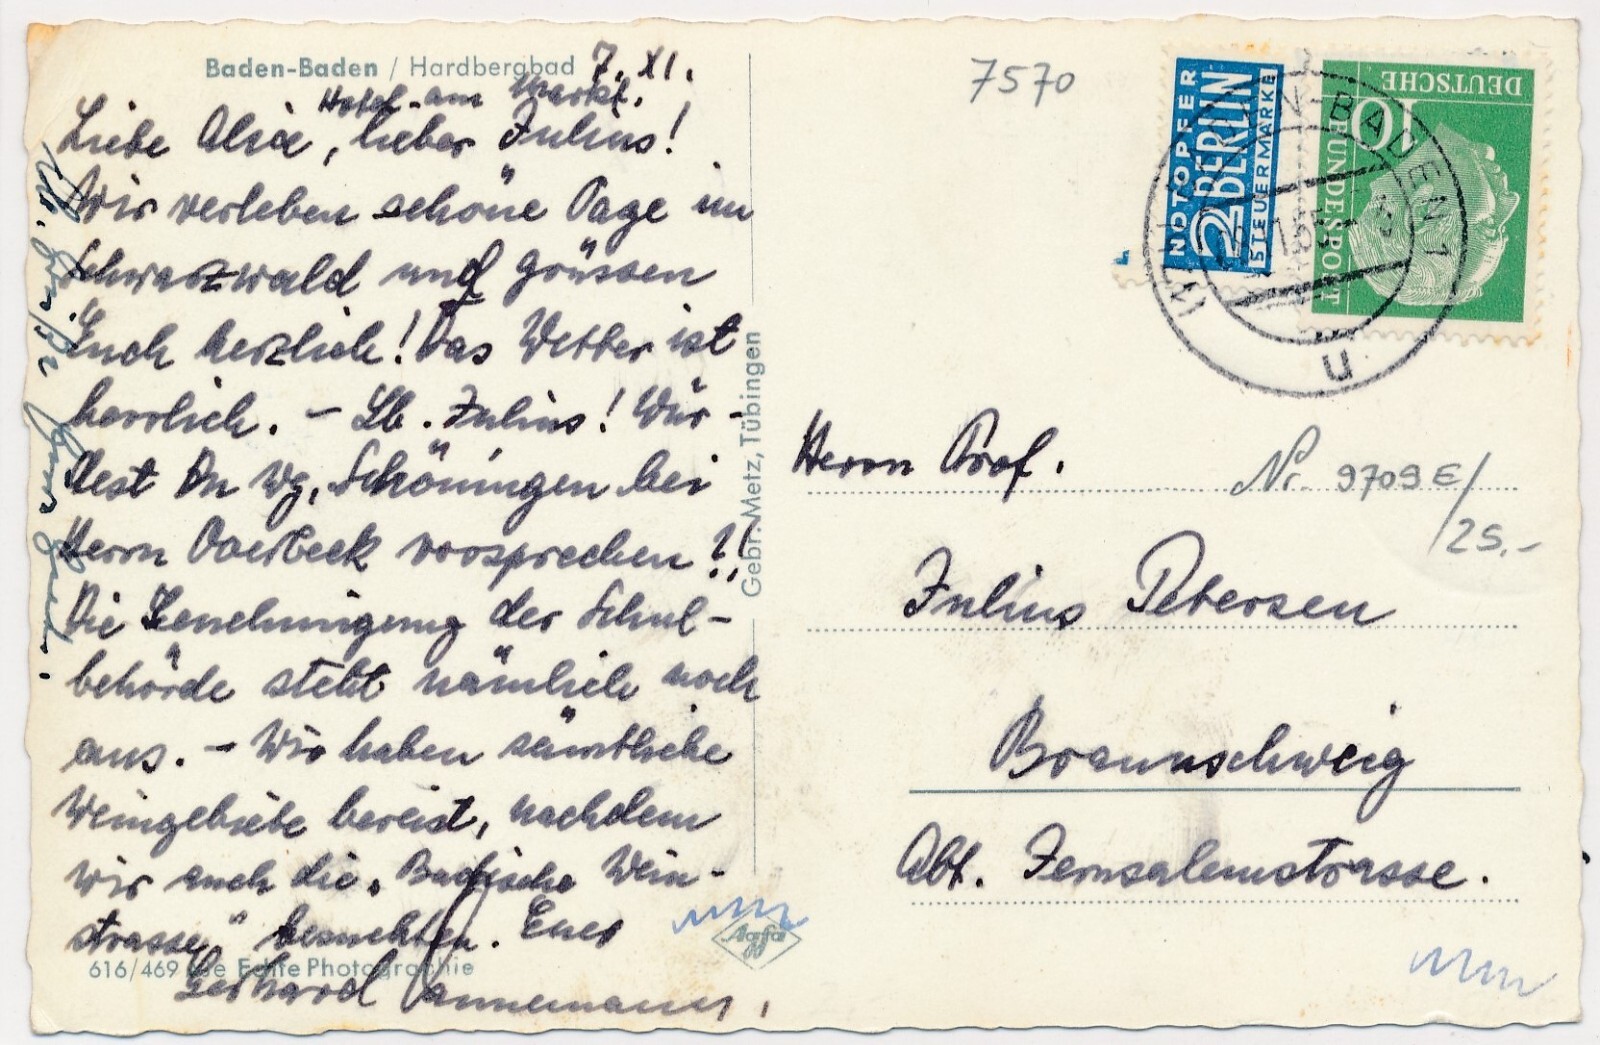 Baden-Baden / Hardbergbad 7. XI.
Hotel am Markt.
Liebe Alice, lieber Julius!
Wir verleben schöne Tage im
Schwarzwald und grüssen
Euch herzlich! Das Wetter ist
herrlich. – Lb. Julius! Wür-
dest Du wg. Schöningen bei
Herrn Overbeck vorsprechen?!
Die Genehmigung der Schul-
behörde steht nämlich noch
aus. – Wir haben sämtliche
Weingebiete bereist, nachdem
wir auch die „Badische Wein-
strasse" besuchten. Euer
Gerhard Pannemann.
616/469 Echte Photographie
Hz. Grüße
Gebr. Metz, Tübingen
Agfa
7570
NOTOPFER
2 BERLIN
STEUERMARKE
DEUTSCHE
BUNDESPOST
10
BADEN-BADEN 1
u
Herrn Prof.
Nr. 9709 E/
25.-
Julius Petersen
Braunschweig
Abt. Jerusalemstrasse.